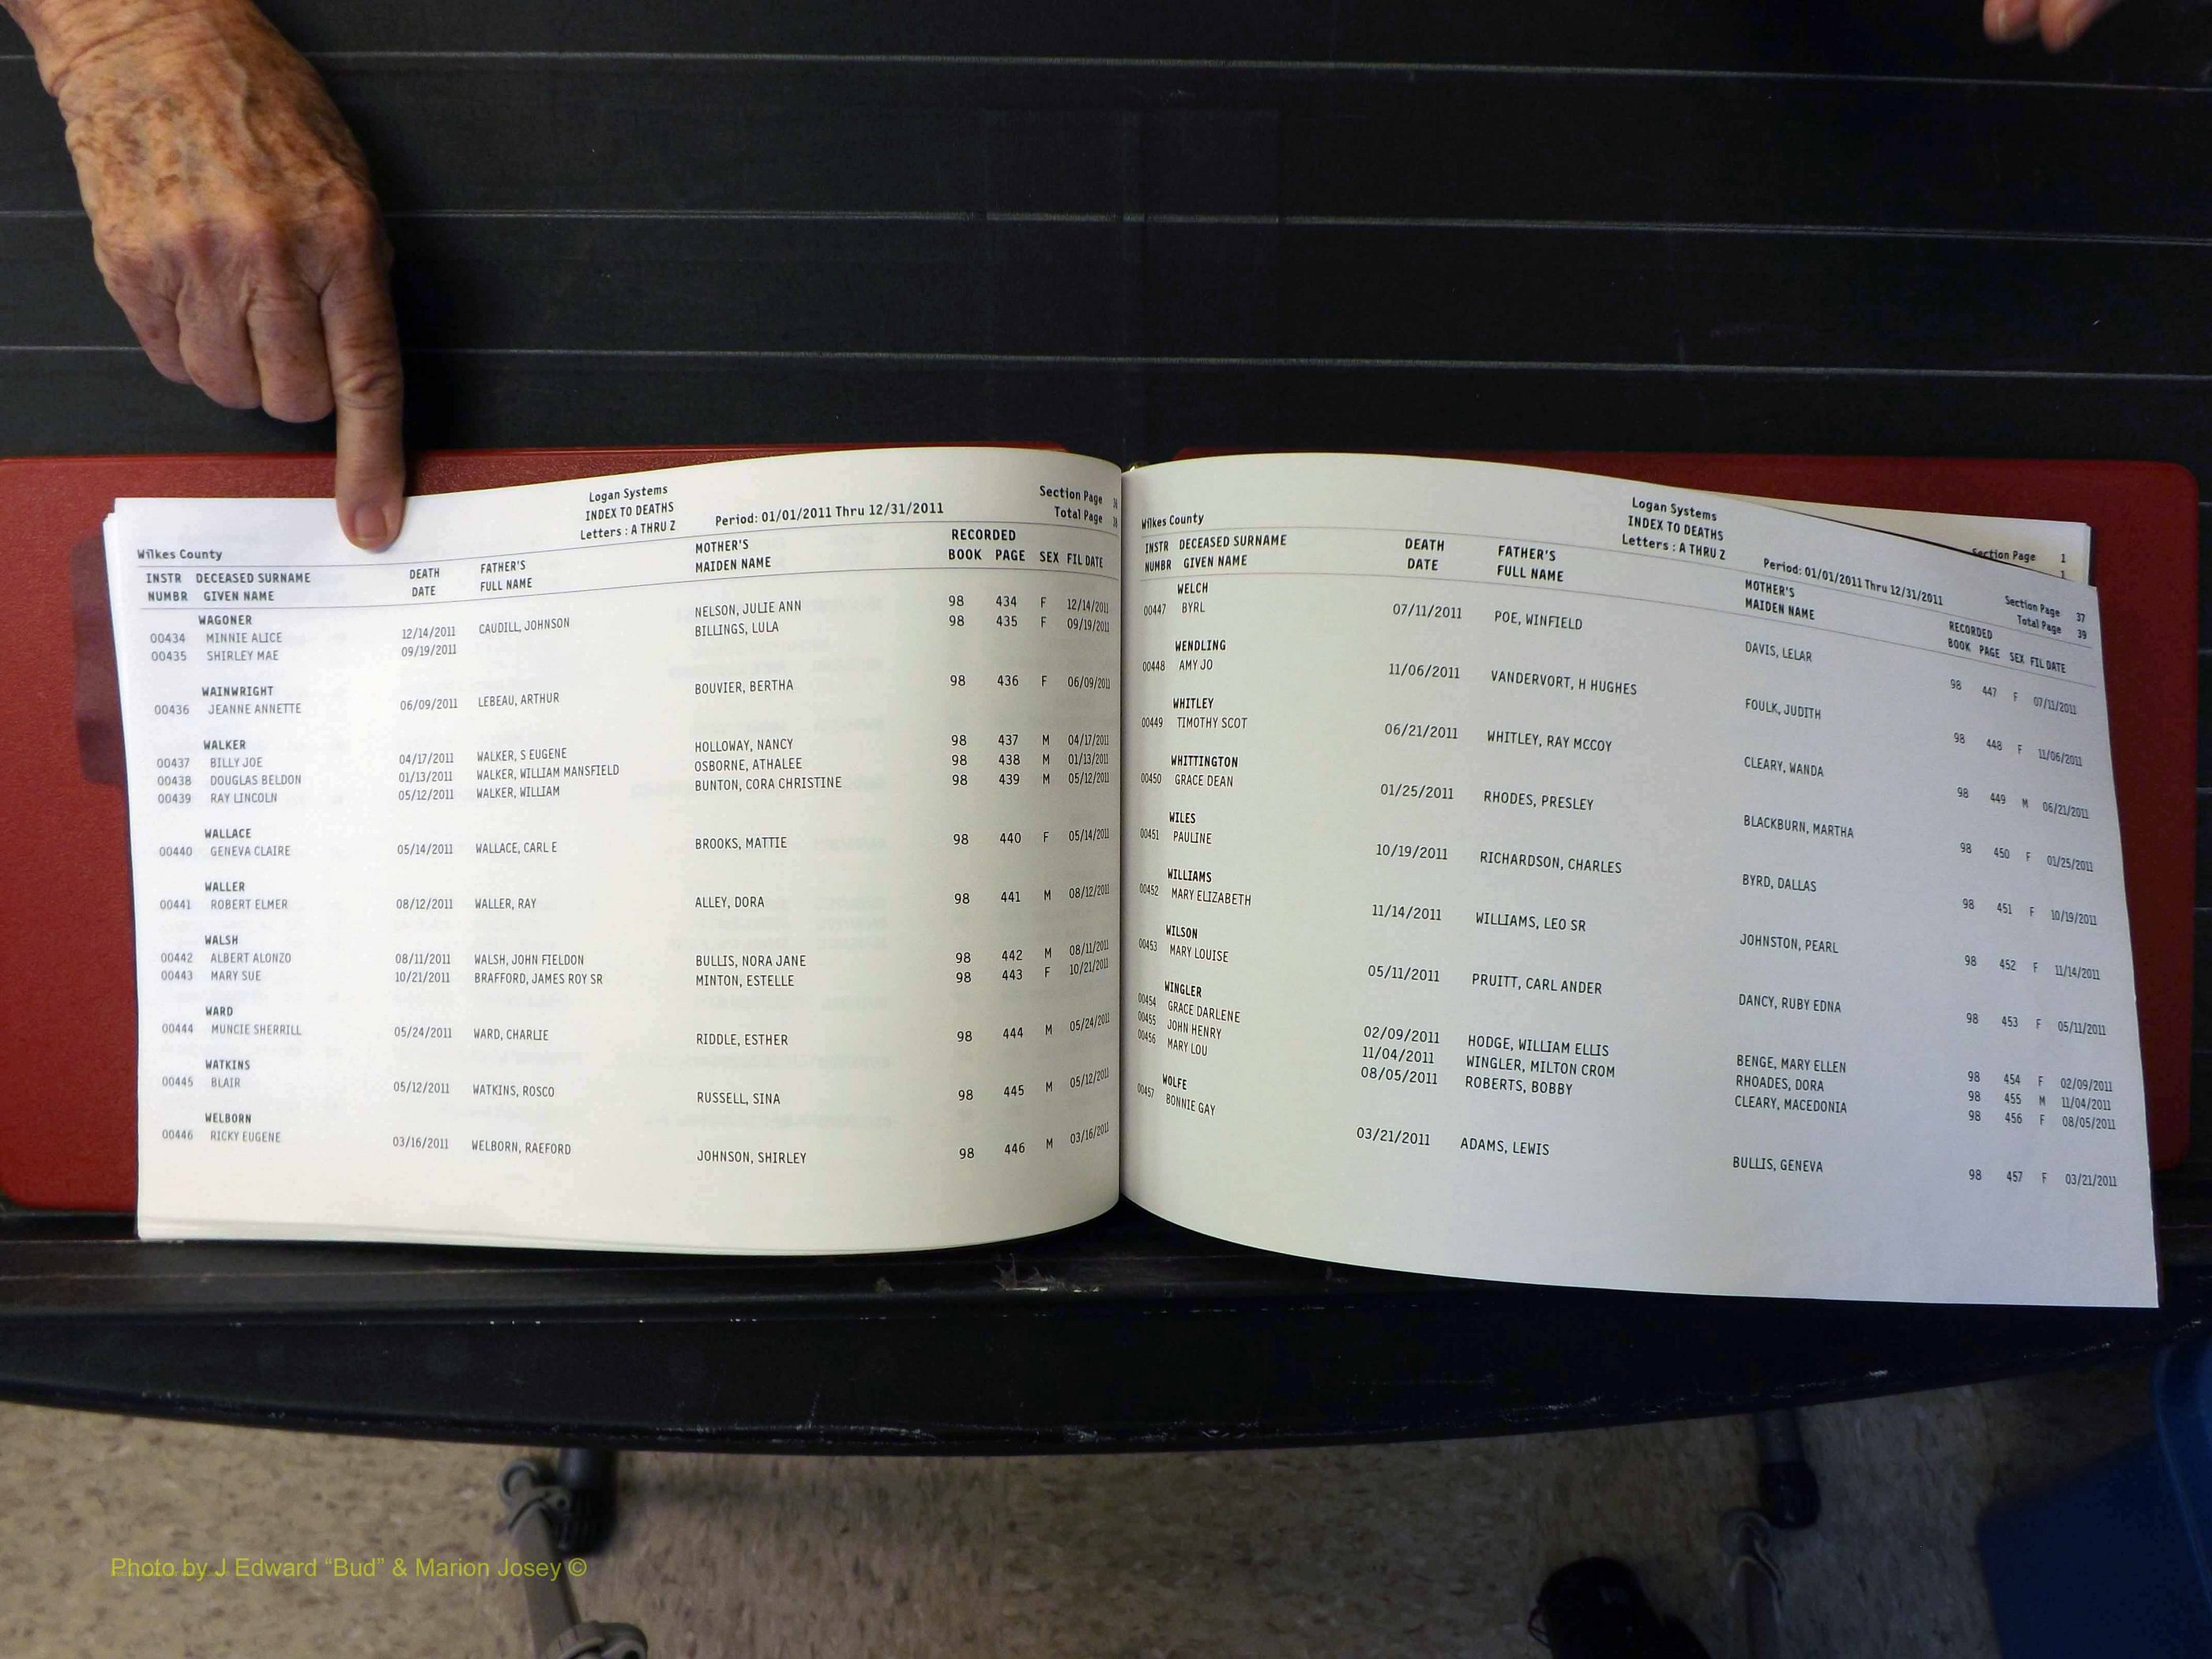 Logan Systems
INDEX TO DEATHS
Letters : A THRU Z
Period: 01/01/2011 Thru 12/31/2011
Section Page 36
Total Page 38
Wilkes County
INSTR DECEASED SURNAME DEATH FATHER'S MOTHER'S RECORDED
NUMBR GIVEN NAME DATE FULL NAME MAIDEN NAME BOOK PAGE SEX FIL DATE
WAGONER
00434 MINNIE ALICE 12/14/2011 CAUDILL, JOHNSON NELSON, JULIE ANN 98 434 F 12/14/2011
00435 SHIRLEY MAE 09/19/2011 BILLINGS, LULA 98 435 F 09/19/2011
WAINWRIGHT
00436 JEANNE ANNETTE 06/09/2011 LEBEAU, ARTHUR BOUVIER, BERTHA 98 436 F 06/09/2011
WALKER
00437 BILLY JOE 04/17/2011 WALKER, S EUGENE HOLLOWAY, NANCY 98 437 M 04/17/2011
00438 DOUGLAS BELDON 01/13/2011 WALKER, WILLIAM MANSFIELD OSBORNE, ATHALEE 98 438 M 01/13/2011
00439 RAY LINCOLN 05/12/2011 WALKER, WILLIAM BUNTON, CORA CHRISTINE 98 439 M 05/12/2011
WALLACE
00440 GENEVA CLAIRE 05/14/2011 WALLACE, CARL E BROOKS, MATTIE 98 440 F 05/14/2011
WALLER
00441 ROBERT ELMER 08/12/2011 WALLER, RAY ALLEY, DORA 98 441 M 08/12/2011
WALSH
00442 ALBERT ALONZO 08/11/2011 WALSH, JOHN FIELDON BULLIS, NORA JANE 98 442 M 08/11/2011
00443 MARY SUE 10/21/2011 BRAFFORD, JAMES ROY SR MINTON, ESTELLE 98 443 F 10/21/2011
WARD
00444 MUNCIE SHERRILL 05/24/2011 WARD, CHARLIE RIDDLE, ESTHER 98 444 M 05/24/2011
WATKINS
00445 BLAIR 05/12/2011 WATKINS, ROSCO RUSSELL, SINA 98 445 M 05/12/2011
WELBORN
00446 RICKY EUGENE 03/16/2011 WELBORN, RAEFORD JOHNSON, SHIRLEY 98 446 M 03/16/2011
Section Page 1
1
Logan Systems
INDEX TO DEATHS
Letters : A THRU Z
Period: 01/01/2011 Thru 12/31/2011
Section Page 37
Total Page 39
Wilkes County
INSTR DECEASED SURNAME DEATH FATHER'S MOTHER'S RECORDED
NUMBR GIVEN NAME DATE FULL NAME MAIDEN NAME BOOK PAGE SEX FIL DATE
WELCH
00447 BYRL 07/11/2011 POE, WINFIELD DAVIS, LELAR 98 447 F 07/11/2011
WENDLING
00448 AMY JO 11/06/2011 VANDERVORT, H HUGHES FOULK, JUDITH 98 448 F 11/06/2011
WHITLEY
00449 TIMOTHY SCOT 06/21/2011 WHITLEY, RAY MCCOY CLEARY, WANDA 98 449 M 06/21/2011
WHITTINGTON
00450 GRACE DEAN 01/25/2011 RHODES, PRESLEY BLACKBURN, MARTHA 98 450 F 01/25/2011
WILES
00451 PAULINE 10/19/2011 RICHARDSON, CHARLES BYRD, DALLAS 98 451 F 10/19/2011
WILLIAMS
00452 MARY ELIZABETH 11/14/2011 WILLIAMS, LEO SR JOHNSTON, PEARL 98 452 F 11/14/2011
WILSON
00453 MARY LOUISE 05/11/2011 PRUITT, CARL ANDER DANCY, RUBY EDNA 98 453 F 05/11/2011
WINGLER
00454 GRACE DARLENE 02/09/2011 HODGE, WILLIAM ELLIS BENGE, MARY ELLEN 98 454 F 02/09/2011
00455 JOHN HENRY 11/04/2011 WINGLER, MILTON CROM RHOADES, DORA 98 455 M 11/04/2011
00456 MARY LOU 08/05/2011 ROBERTS, BOBBY CLEARY, MACEDONIA 98 456 F 08/05/2011
WOLFE
00457 BONNIE GAY 03/21/2011 ADAMS, LEWIS BULLIS, GENEVA 98 457 F 03/21/2011
Photo by J Edward “Bud” & Marion Josey ©